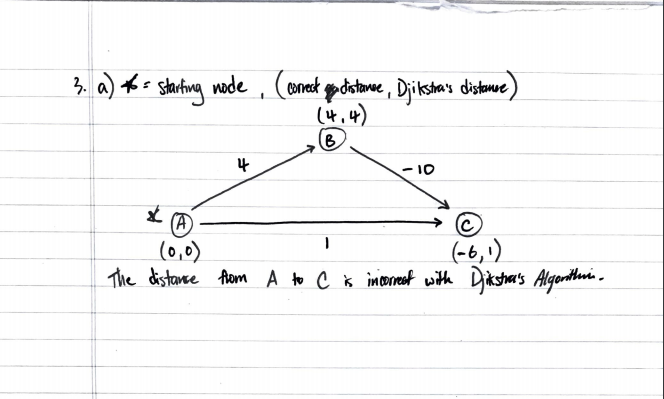 3. a) * = starting node, (correct distance, Djikstra's distance)
(4,4)
B
4
-10
* A
C
(0,0)
1
(-6,1)
The distance from A to C is incorrect with Djikstra's Algorithm.